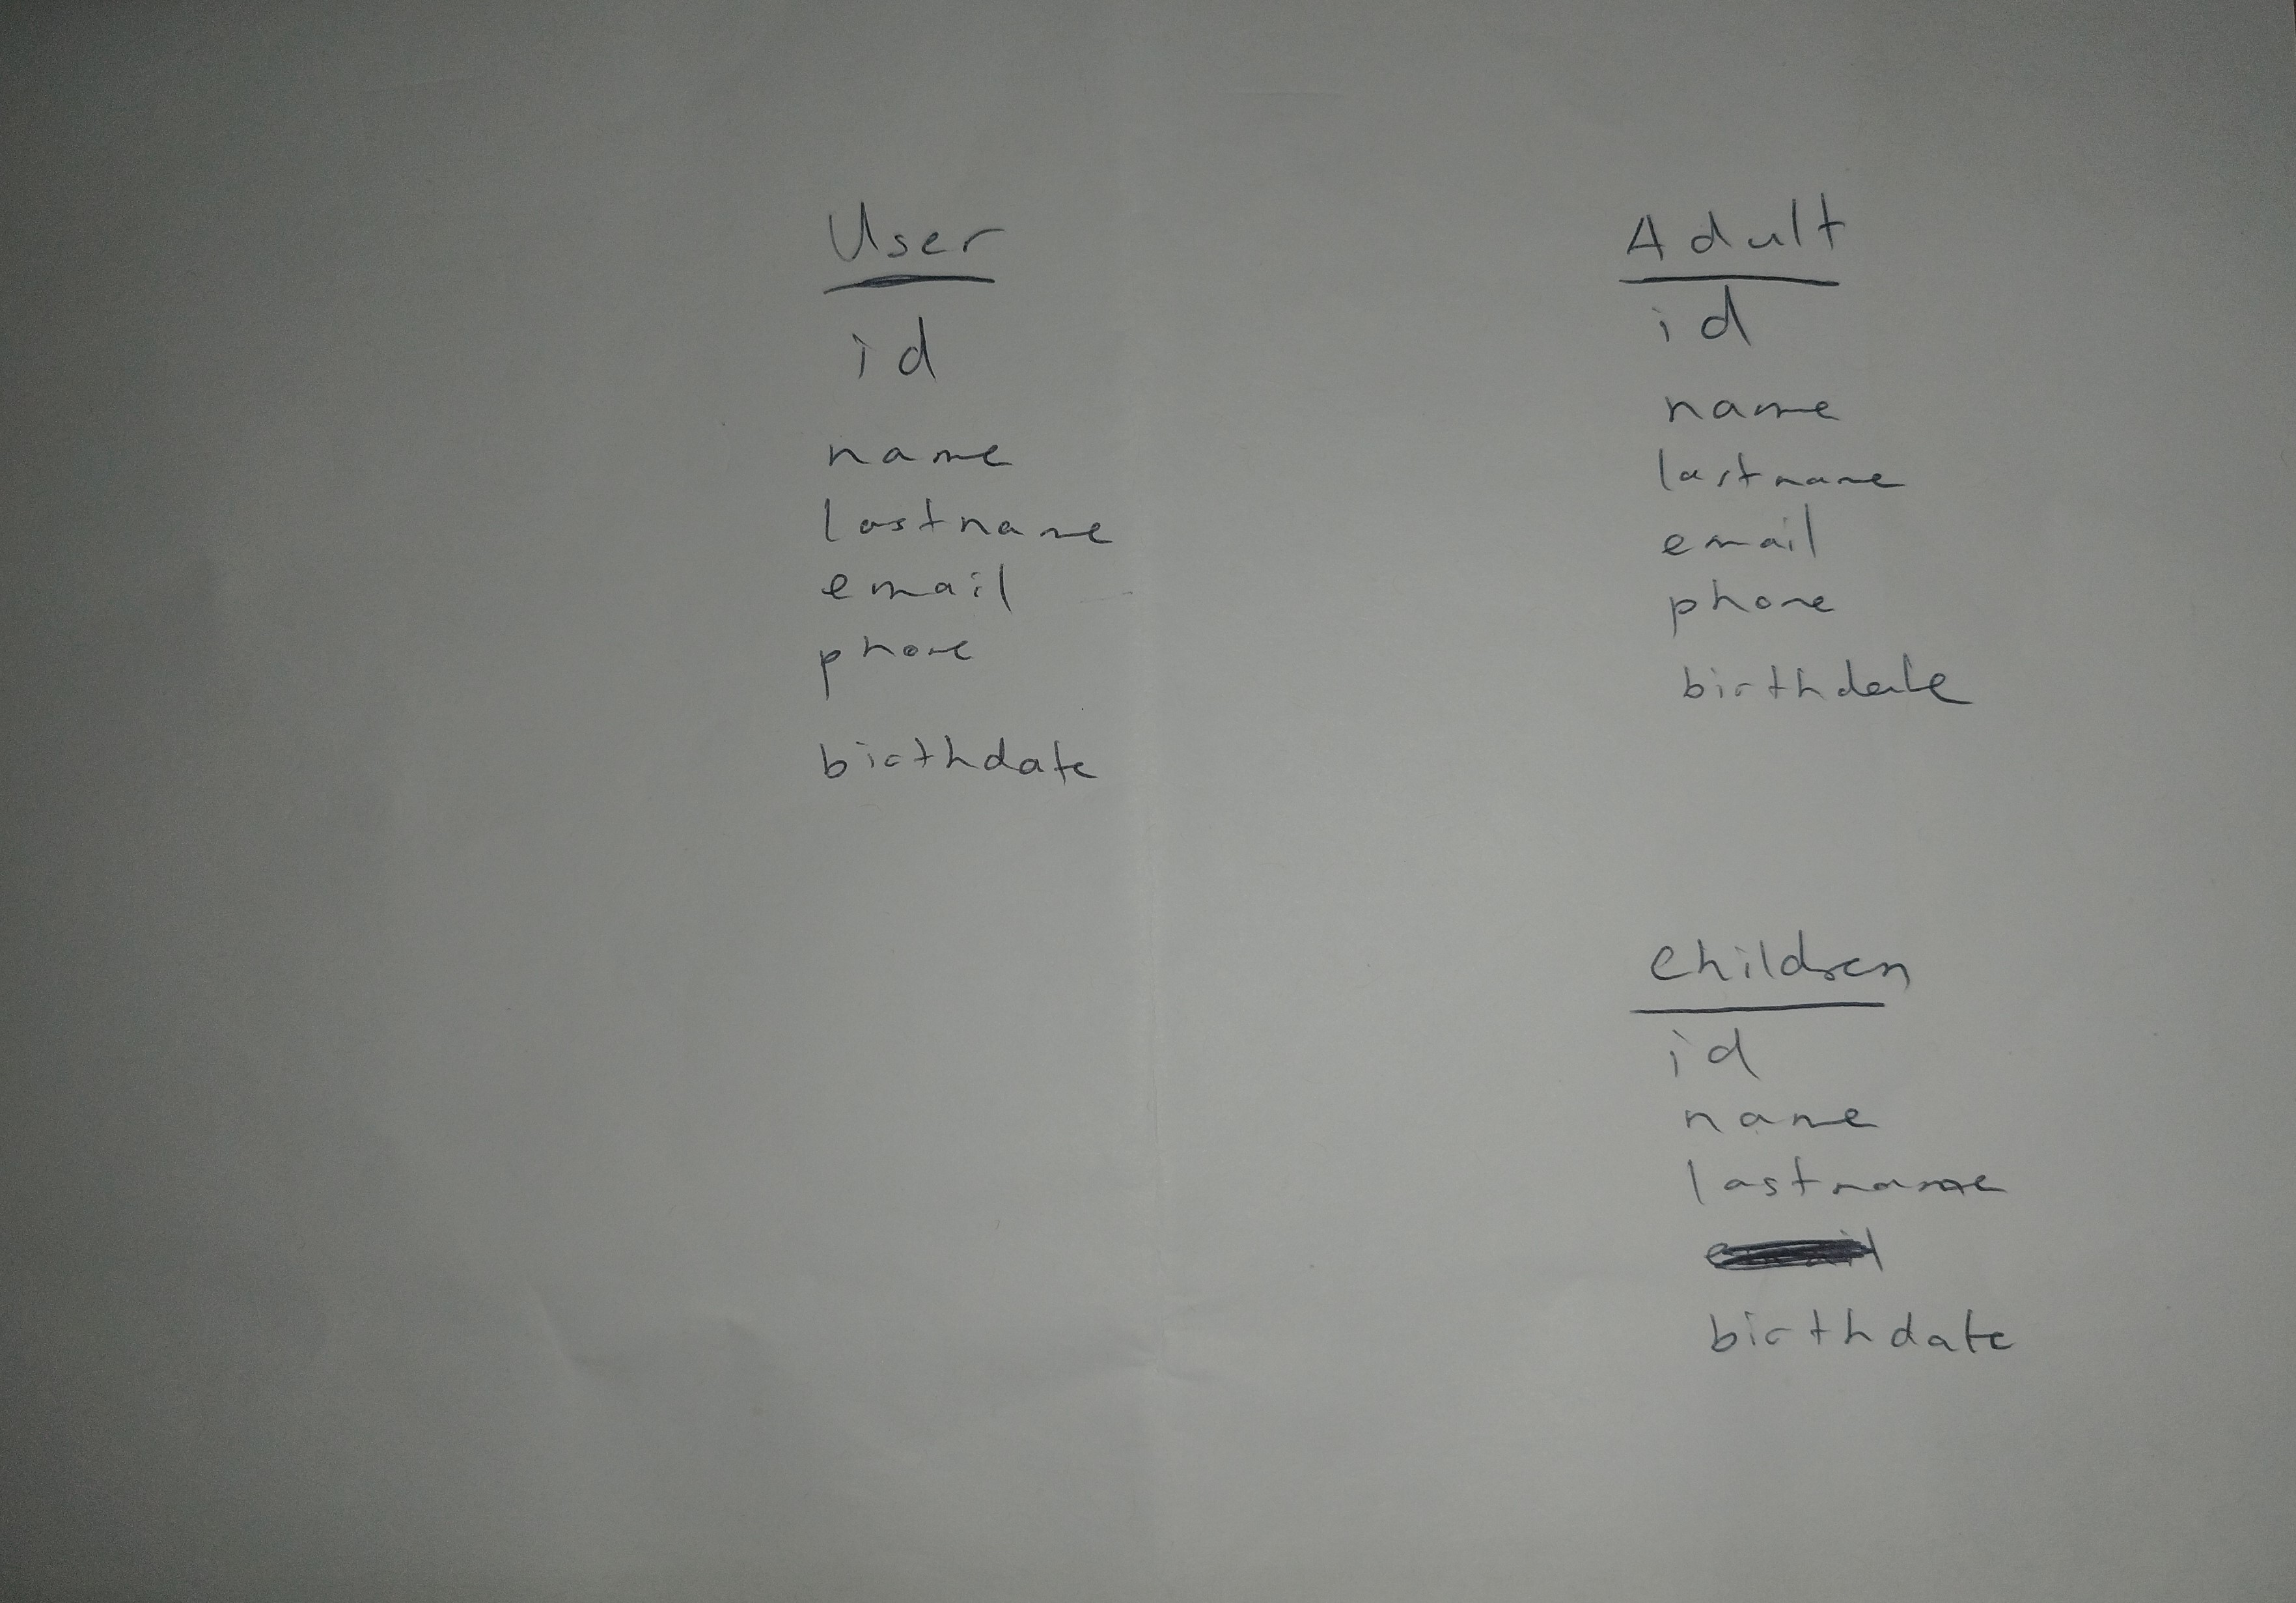 User
id
name
lastname
email
phone
birthdate
Adult
id
name
lastname
email
phone
birthdate
Children
id
name
lastname
birthdate